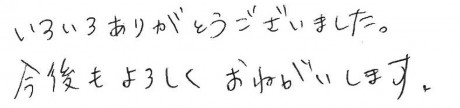 いろいろありがとうございました。
今後もよろしくおねがいします。